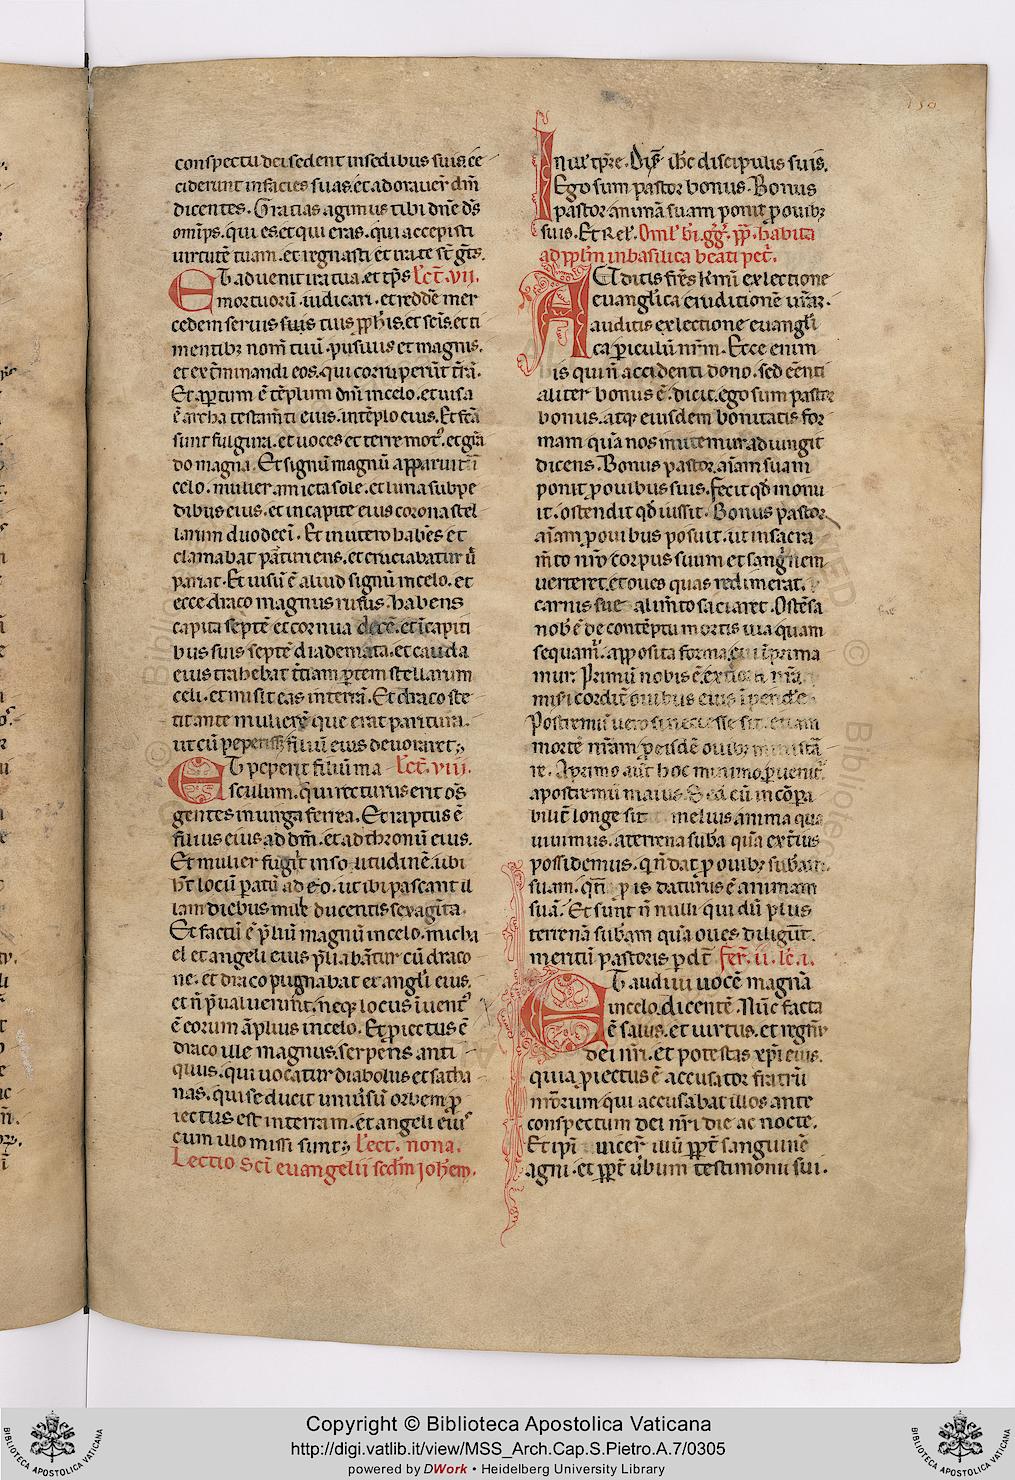 150
conspectu dei sedent insedibus suis. ce
ciderunt infacies suas. et adorauer̄ dn̄m
dicentes. Gratias agimus tibi dn̄e ds̄
om̄ps. qui es et qui eras. qui accepisti
uirtutē tuam. et regnasti et irate st̄ gēs.
Et aduenit ira tua. et tp̄s lect̄. vii.
mortuorū iudicari. et reddē mer
cedem seruis suis tuis ꝓphis. et scīs. et ti
mentibꝫ nom̄ tuū. pusillis et magnis.
et ext̄minandi eos. qui corruperūt t̄rā.
Et aꝑtum ē tēplum dn̄i in celo. et uisa
ē archa testam̄ti eius. in tēplo eius. Et fc̄a
sunt fulgura. et uoces et terre motꝰ. et grā
do magna. Et signū magnū apparuit ī
celo. mulier amicta sole. et luna sub pe
dibus eius. et in capite eius corona stel
larum duodeci. Et in utero habēs et
clamabat p̄turiens. et cruciabatur ū
pariat. Et uisū ē aliud signū in celo. et
ecce draco magnus rufus. habens
capita septē et cornua decē. et ī capiti
bus suis septē diademata. et cauda
eius trahebat t̄tiam ꝑtem stellarum
celi. et misit eas in terrā. Et draco ste
tit ante mulierē que erat paritura.
ut cū peperisset filiū eius deuoraret.
Et peperit filiū ma lect̄. viii.
sculum. qui recturus erit om̄s
gentes in uirga ferrea. Et raptus ē
filius eius ad dn̄m. et ad thronū eius.
Et mulier fugit in solitudinē. ubi
ht̄ locū paratū ad eo. ut ibi pascant il
lam diebus mille ducentis sexaginta.
Et factū ē p̄liū magnū in celo. micha
el et angeli eius p̄liabātur cū draco
ne. et draco pugnabat et angl̄i eius.
et n̄ p̄ualuerunt. neqꝫ locus īuentꝰ
ē eorum āplius in celo. Et ꝓiectus ē
draco ille magnus. serpens anti
quus. qui uocatur diabolus et satha
nas. qui seducit uniūsū orbem ꝓ
iectus est in terram. et angeli eiꝰ
cum illo missi sunt. lect. nona.
Lectio sc̄i euangelii scd̄m ioh̄em.
In illo tp̄re. Dix̄ ih̄c discipulis suis.
Ego sum pastor bonus. Bonus
pastor animā suam ponit ꝓ ouibꝫ
suis. Et Rel̄. Oml̄ bi. gg̅. pp̅. habita
ad ppl̄m in basilica beati pet̄.
Audistis fr̄es k̄mi ex lectione
euangl̄ica eruditionē ur̄am.
auditis ex lectione euangl̄i
ca ꝑiculū nr̄m. Ecce enim
is qui n̄ accidenti dono. sed eēnti
aliter bonus ē. dicit. ego sum pastor
bonus. atqꝫ eiusdem bonitatis for
mam quā nos imitemur adiungit
dicens. Bonus pastor. aīam suam
ponit ꝓ ouibus suis. fecit qd̄ monu
it. ostendit qd̄ iussit. Bonus pastor
aīam ꝓ ouibus posuit. ut in sacra
m̄to nr̄o corpus suum et sanguinem
uerteret. et oues quas redimerat.
carnis sue alim̄to saciaret. Ostēsa
nob̄ ē de contēptu mortis uia quam
sequam̄. apposita forma. cui īprima
mur. Primū nobis ē ext̄iora nr̄a
misericordit̄ ouibus eius īpendere.
Postremū uero si necesse sit. etiam
mortē nr̄am ꝓ eisdē ouibꝫ ministra
re. A primo aut̄ hoc minimo. ꝑuenitꝰ
ap postremū maius. Sed cū incōpa
bilit̄ longe sit melius anima qua
uiuimus. a terrena sub̄a quā ext̄ius
possidemus. q̄ n̄ dat ꝓ ouibꝫ sub̄am
suam. qn̄ ꝓ is daturus ē animam
suā. Et sunt n̄nulli qui dū plus
terrenā sub̄am quā oues diligūt.
meritū pastoris ꝑdt̄. fer̄. ii. lc̄. i.
Et audiui uocē magnā
in celo. dicentē. Nūc facta
ē salus. et uirtus. et regnū
dei nr̄i. et potestas xp̄i eius.
quia ꝓiectus ē accusator fratrū
nr̄orum qui accusabat illos ante
conspectum dei nr̄i die ac nocte.
Et ip̄i uicer̄ illū ꝓpt̄ sanguinē
agni. et ꝓpt̄ ūbum testimonii sui.
Copyright © Biblioteca Apostolica Vaticana
http://digi.vatlib.it/view/MSS_Arch.Cap.S.Pietro.A.7/0305
powered by DWork • Heidelberg University Library
BIBLIOTECA APOSTOLICA VATICANA
BIBLIOTECA APOSTOLICA VATICANA